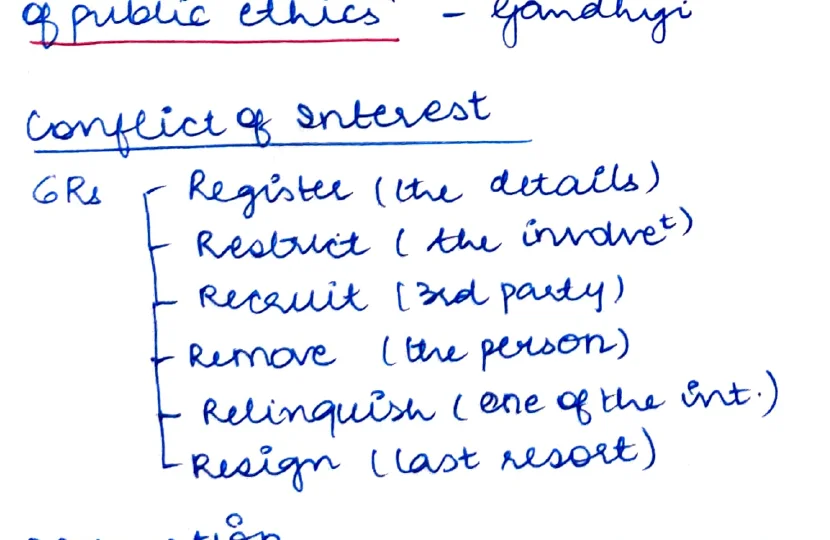 of public ethics" - Gandhiji
Conflict of Interest
6Rs - Register (the details)
- Restrict (the involvet)
- Recruit (3rd party)
- Remove (the person)
- Relinquish (one of the int.)
- Resign (last resort)